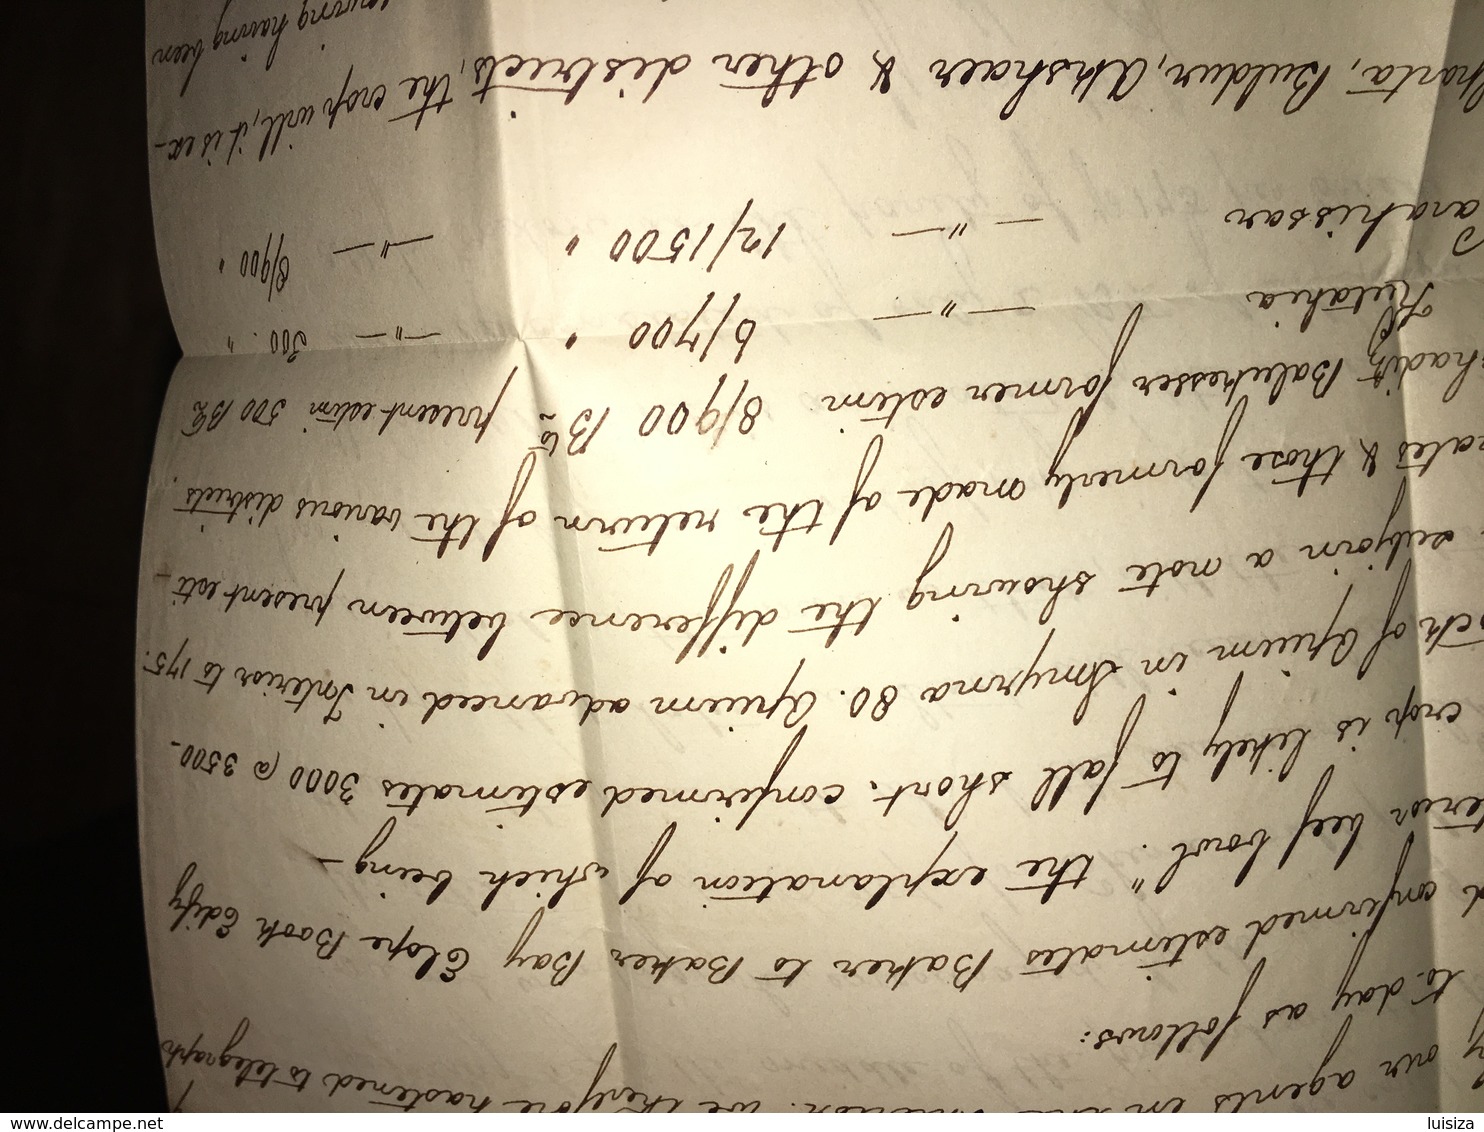 our agents in the we therefore hastened to telegraph
to day as follows:
confirmed estimates Baker to Baker Bay Elope Book Edify
beef bowl." the explanation of which being —
crop is likely to fall short. confirmed estimates 3000 @ 3500 —
of Opium in Smyrna 80. Opium advanced in Interior to 175.
subjoin a note showing the difference between present esti-
mates & those formerly made of the return of the various districts.
Balukesser former estim 8/900 Bts present estim 500 Bts
Kutahia — " — 6/700 " — " — 300 "
Carahissar — " — 12/1500 " — " — 8/900 "
Sparta, Buldur, Akshaer & other districts, the crop will, it is ex-
having been
www.delcampe.net
luisiza